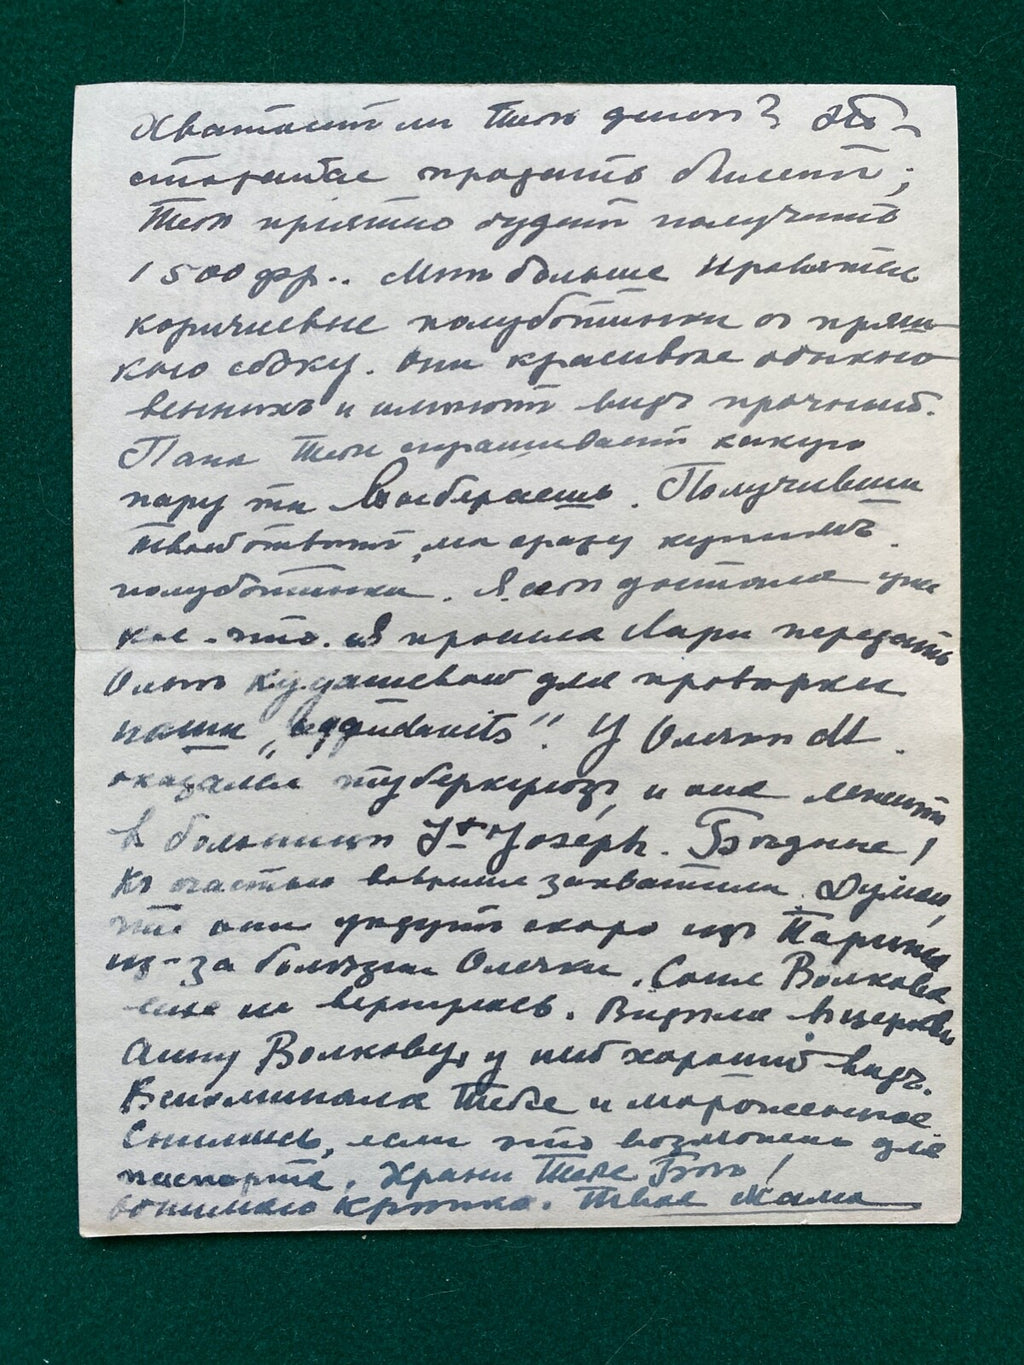 Хватаетъ ли Тебѣ денегъ? По-
старайся продать билетъ;
Тебѣ прiятно будетъ получить
1500 фр.. Мнѣ больше нравятся
коричневые полуботинки съ
кого сбоку. Они красивѣе обыкно
венныхъ и имѣютъ видъ прочный.
Папа Тебя спрашиваетъ какую
пару ты выбераешь. Получивши
Твой отвѣтъ, мы сразу купимъ
полуботинки. Я достала уже
кое-что. Я просила Мари передать
Ольгѣ Кудашевой для провѣрки
наши „affidavits". У Олечки М.
оказался туберкулозъ, и она лежитъ
въ больницѣ St Joseph. Бѣдные!
Къ счастью вовремя захватили. Думаю,
что они уѣдутъ скоро изъ Парижа
из-за болѣзни Олечки. Соня Волкова
еще не вернулась. Видѣла въ церкви
Анну Волкову, у ней хорошiй видъ.
Вспоминала Тебя и мороженное
Снимись, если это возможно для
паспорта. Храни Тебя Богъ!
обнимаю крѣпко. Твоя Мама